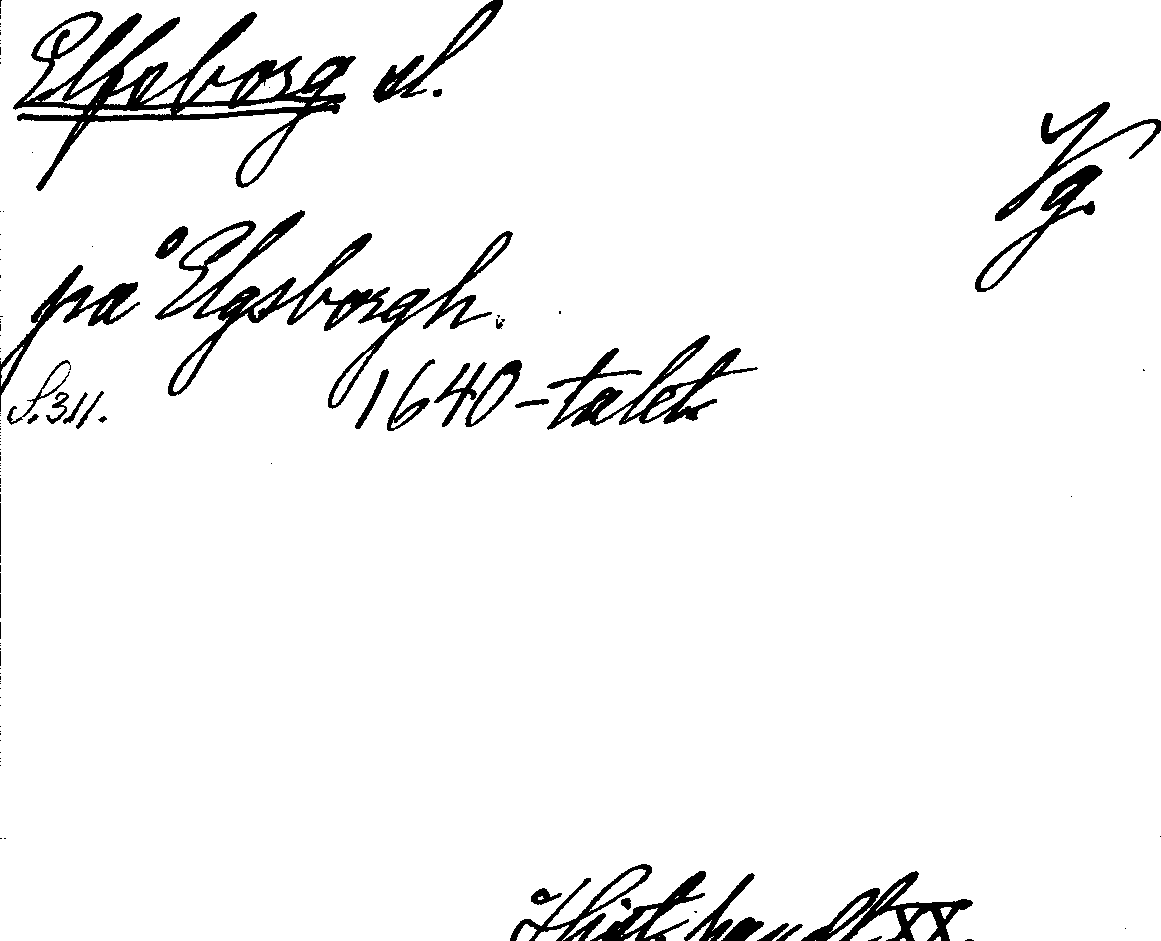 Elfsborg sl.
Vg.
på Elgsborgh.
S. 311. 1640-talet
Hist. handl. XX.